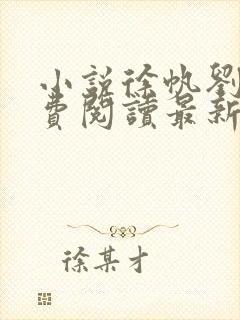 小說徐帆劉
費閱讀最新
徐某才